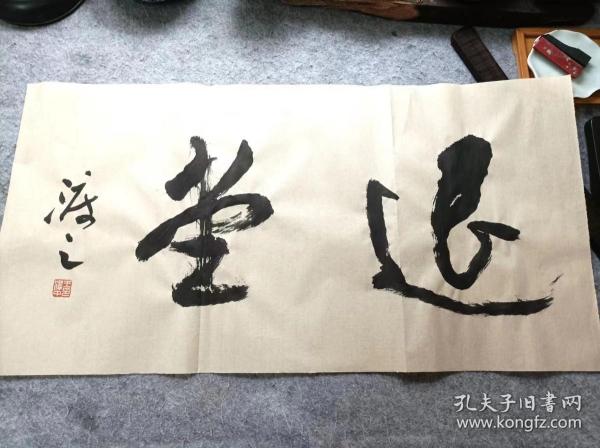 退堂
孔夫子旧书网
www.kongfz.com